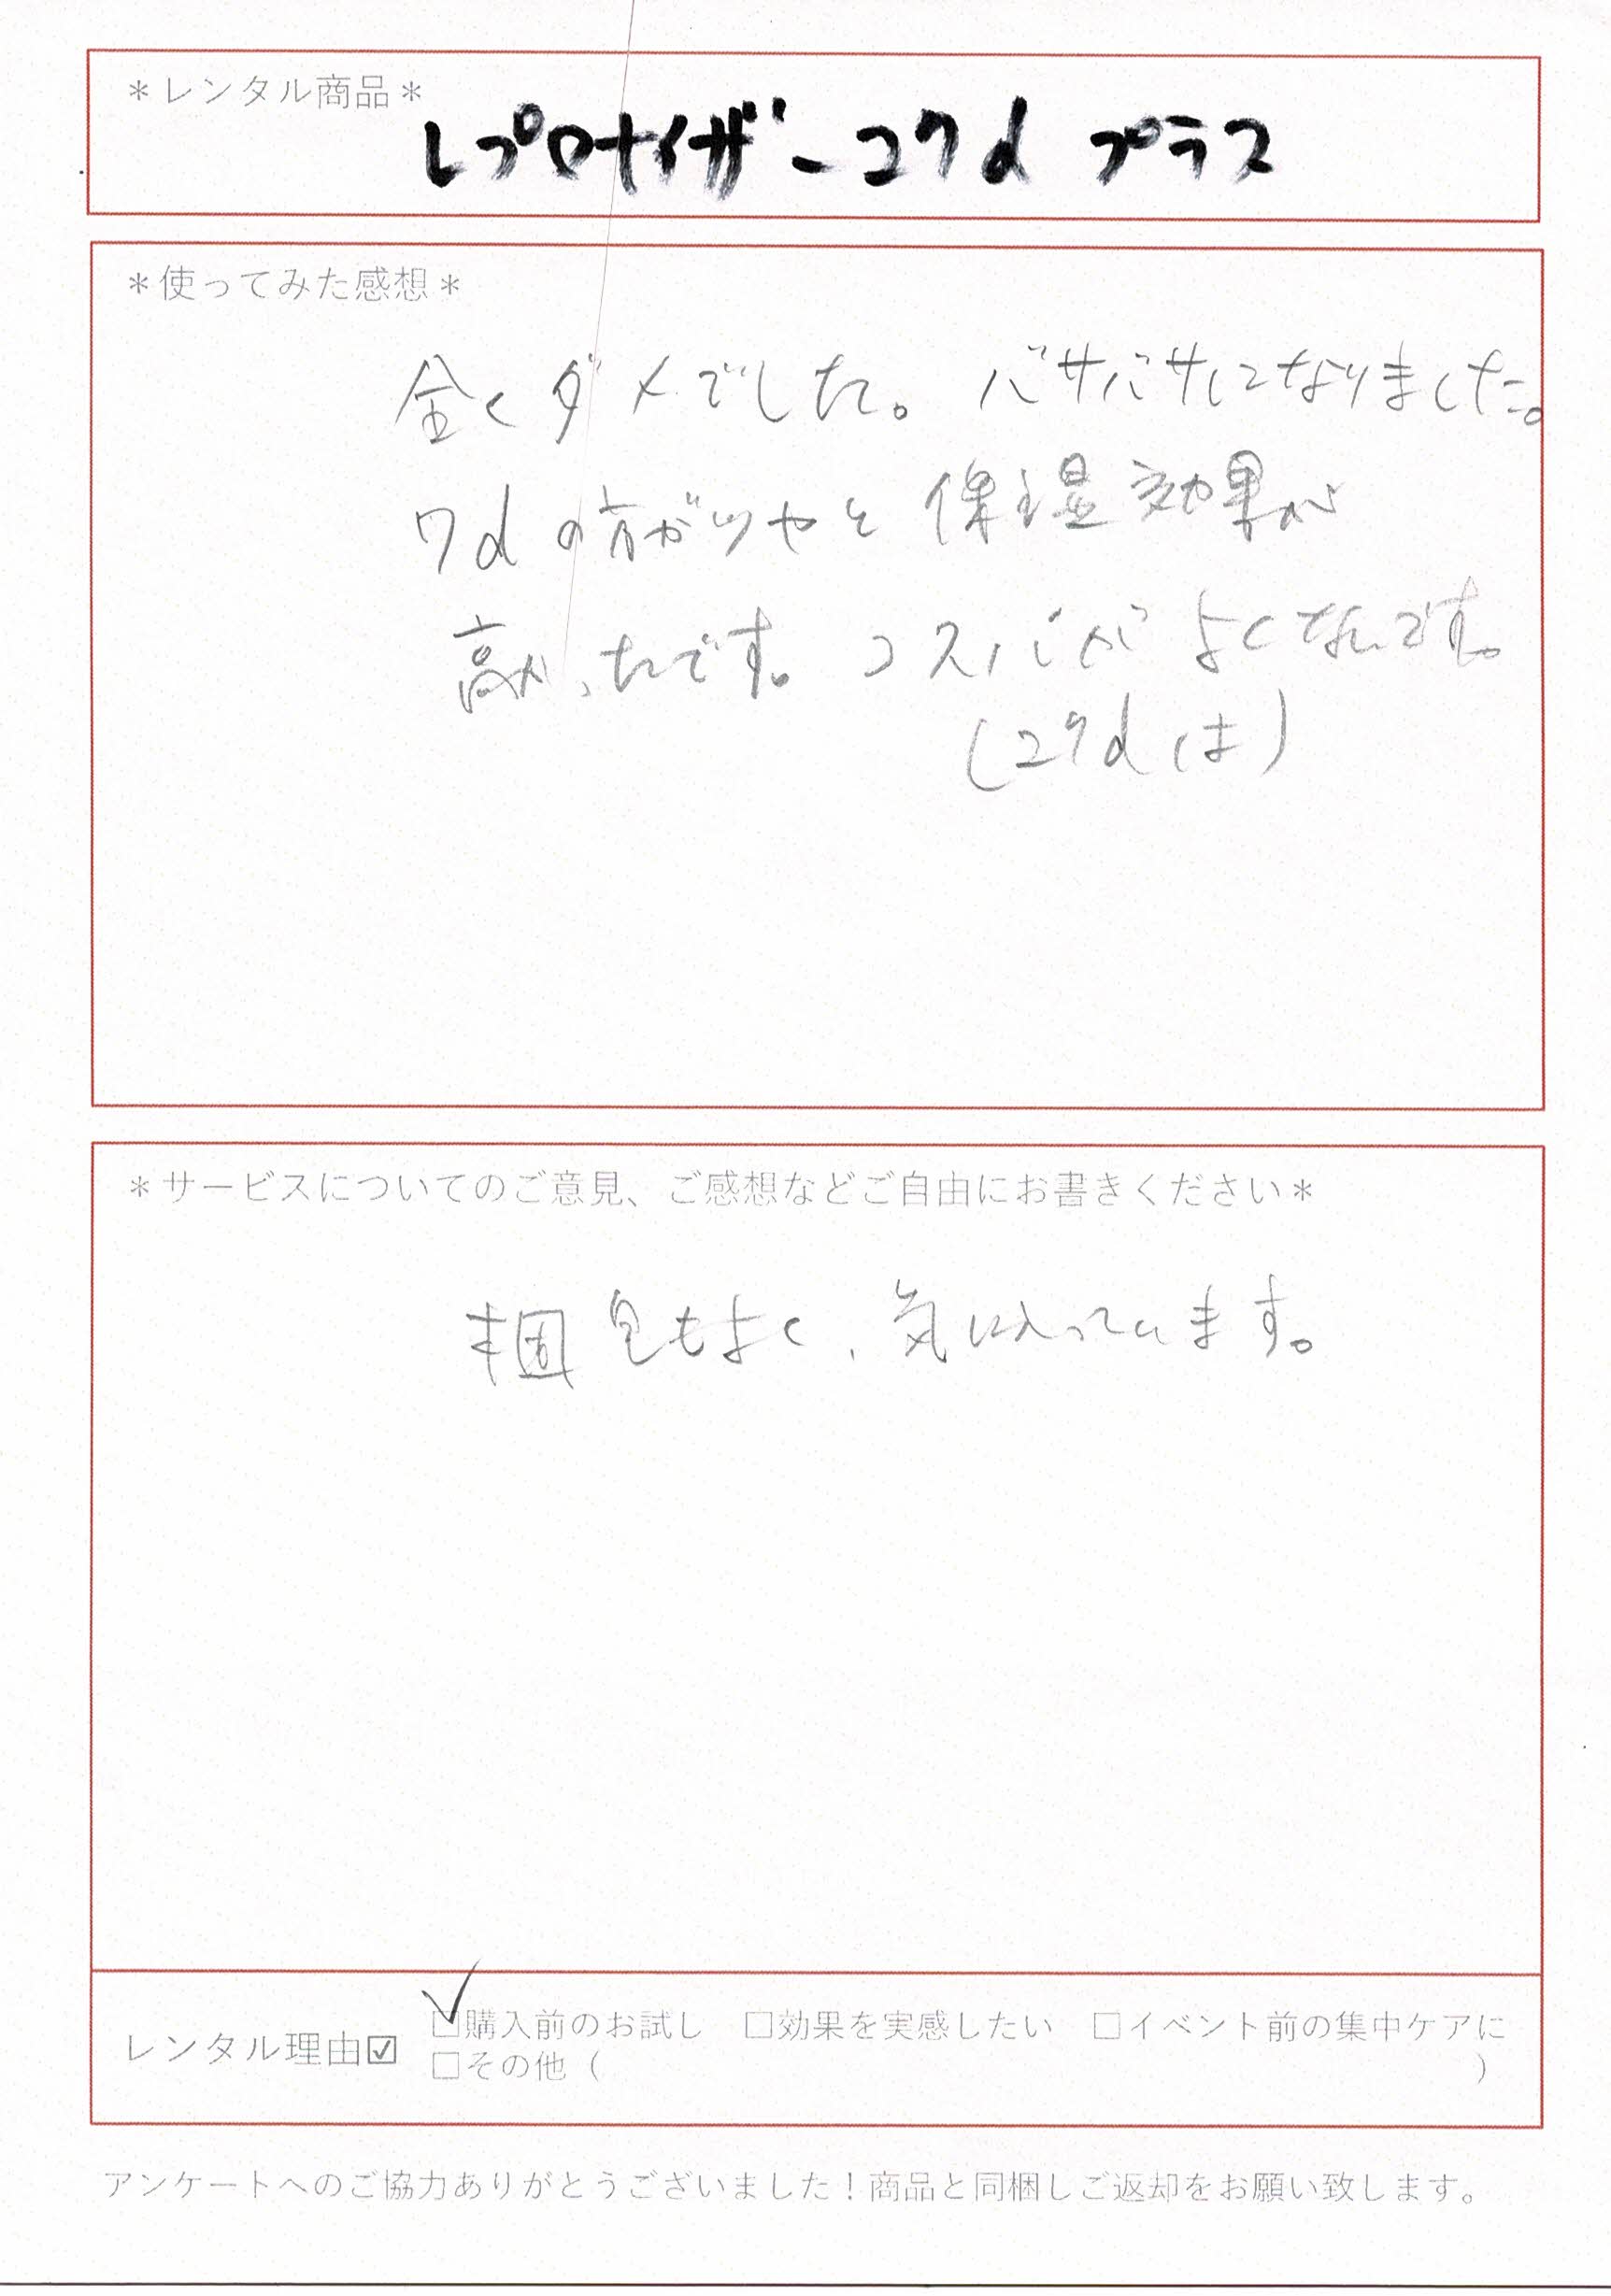 ＊レンタル商品＊
レプロナイザー27d プラス
＊使ってみた感想＊
全くダメでした。バサバサになりました。
7dの方がツヤと保湿効果が
高かったです。コスパがよくないです。
(27dは)
＊サービスについてのご意見、ご感想などご自由にお書きください＊
梱包もよく、気に入っています。
レンタル理由☑ □購入前のお試し □効果を実感したい □イベント前の集中ケアに
□その他（ ）
アンケートへのご協力ありがとうございました！商品と同梱しご返却をお願い致します。